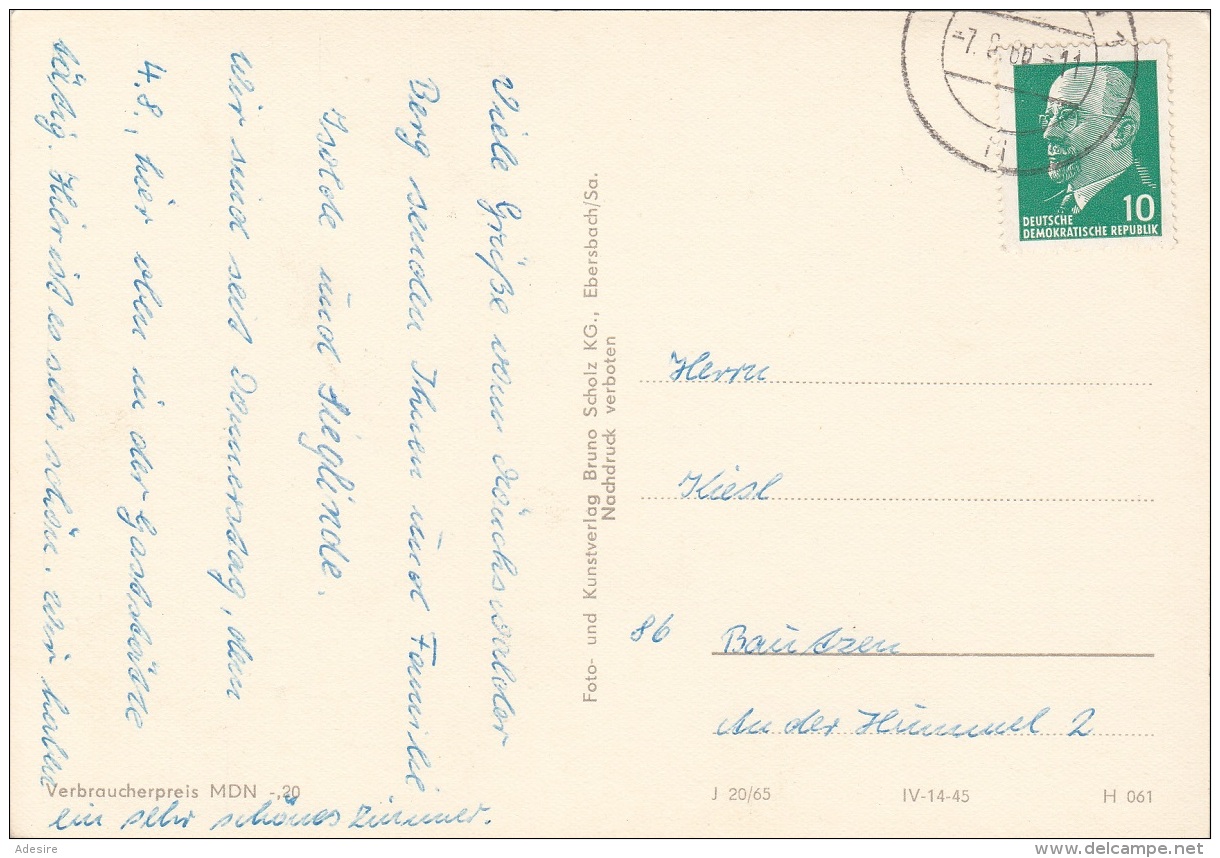 Viele Grüße vom Mönchswalder
Berg senden Ihnen und Familie
Isolde und Sieglinde.
Wir sind seit Donnerstag, den
4.8., hier oben in der Gaststätte
tätig. Hier ist es sehr schön. Wir haben
ein sehr schönes Zimmer.
Verbraucherpreis MDN -,20
Foto- und Kunstverlag Bruno Scholz KG., Ebersbach/Sa.
Nachdruck verboten
-7. 8. 66 -11
10
DEUTSCHE
DEMOKRATISCHE REPUBLIK
Herrn
Kiesl
86 Bautzen
An der Hummel 2
J 20/65 IV-14-45 H 061
Adesire
delcampe.net